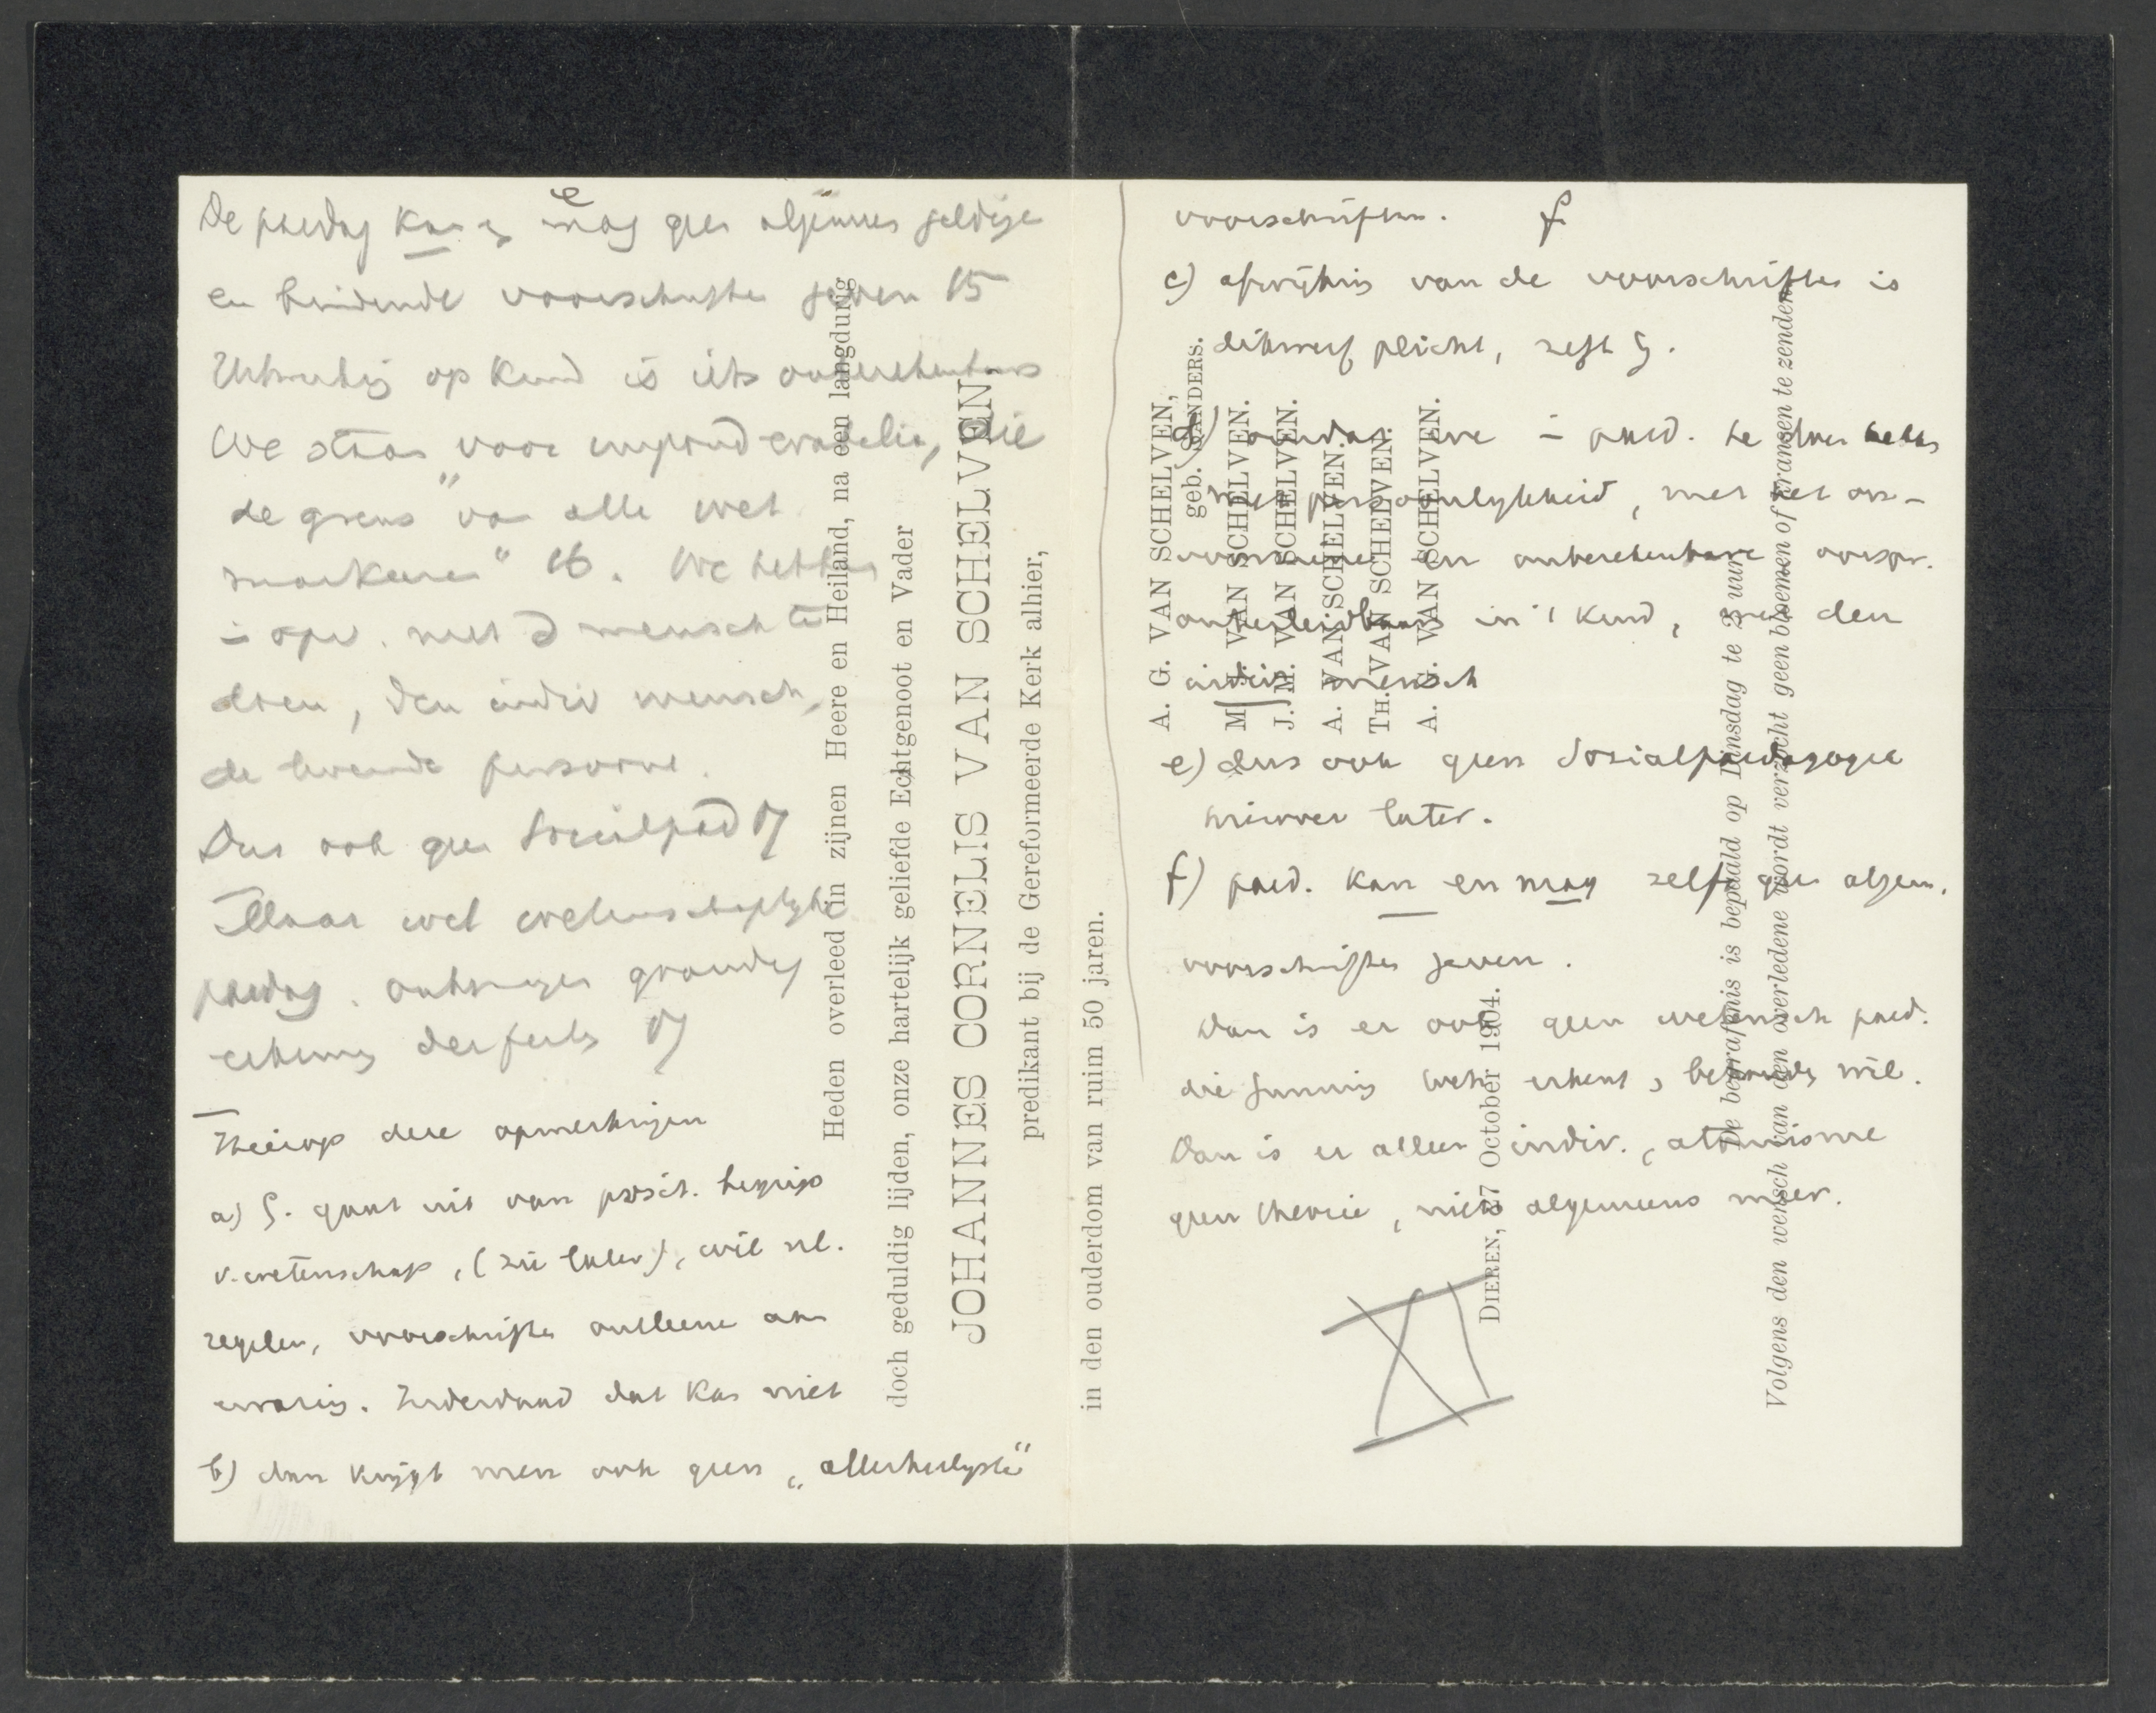 e
De paedag kan en mag geen algemeen geldige
en bindende voorschriften geven 15
op kind is iets onberekenbaars
We staan voor imponderabelia, die
de grens "van alle wet
" 16. We hebben
in opv. met d mensch te
doen, den indiv mensch,
de levende persoon.
Dus ook geen Socialpäd 17
Maar wel wetenschaplyke
paedag. grondig
der feits 17
Hierop deze opmerkingen
a) G. gaat uit van posit. begrip
v. wetenschap, (zie later), wil nl.
regelen, voorschriften ontleenen aan
ervaring. Inderdaad dat kan niet
b) dan krijgt men ook geen „allerheiligste"
Heden overleed in zijnen Heere en Heiland, na een langdurig
doch geduldig lijden, onze hartelijk geliefde Echtgenoot en Vader
JOHANNES CORNELIS VAN SCHELVEN,
predikant bij de Gereformeerde Kerk alhier,
in den ouderdom van ruim 50 jaren.
voorschriften. f
c) afwijking van de voorschriften is
dikwerf plicht, zegt G.
d) omdat we in paed. te doen hebben
met persoonlykheid, met het on-
en onberekenbare oorspr.
onherleidbaars in 't kind, met den
indiv mensch
e) dus ook geen Sozialpaedagogie
hierover later.
f) paed. kan en mag zelf geen algem.
voorschriften geven.
Dan is er ook geen wetensch paed.
die G. erkent, wil.
Dan is er alleen indiv., atomisme
geen theorie, niets algemeens meer.
XI
A. G. VAN SCHELVEN,
geb. SANDERS.
M. VAN SCHELVEN.
J. M. VAN SCHELVEN.
A. VAN SCHELVEN.
TH. VAN SCHELVEN.
A. G. VAN SCHELVEN.
DIEREN, 27 October 1904.
De begrafenis is bepaald op Dinsdag te 2 uur
Volgens den wensch van den overledene wordt verzocht geen bloemen of kransen te zenden.